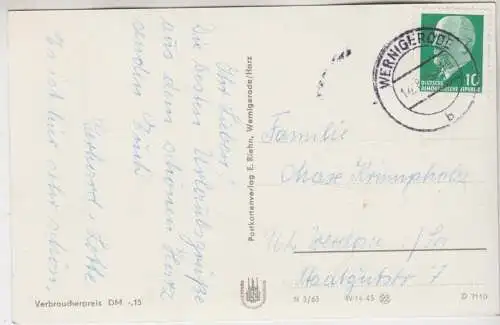 Ihr Lieben,
Die besten Urlaubsgrüße
aus dem schönen Harz
senden Euch
Gerhard u. Lotte
Es ist hier sehr schön.
Verbraucherpreis DM -,15
Postkartenverlag E. Riehn, Wernigerode/Harz
WERNIGERODE
b
10
DEUTSCHE
DEMOKRATISCHE REPUBLIK
Familie
Max
Staatsgutstr. 7
N 3/63
IV-14-45
D 7110